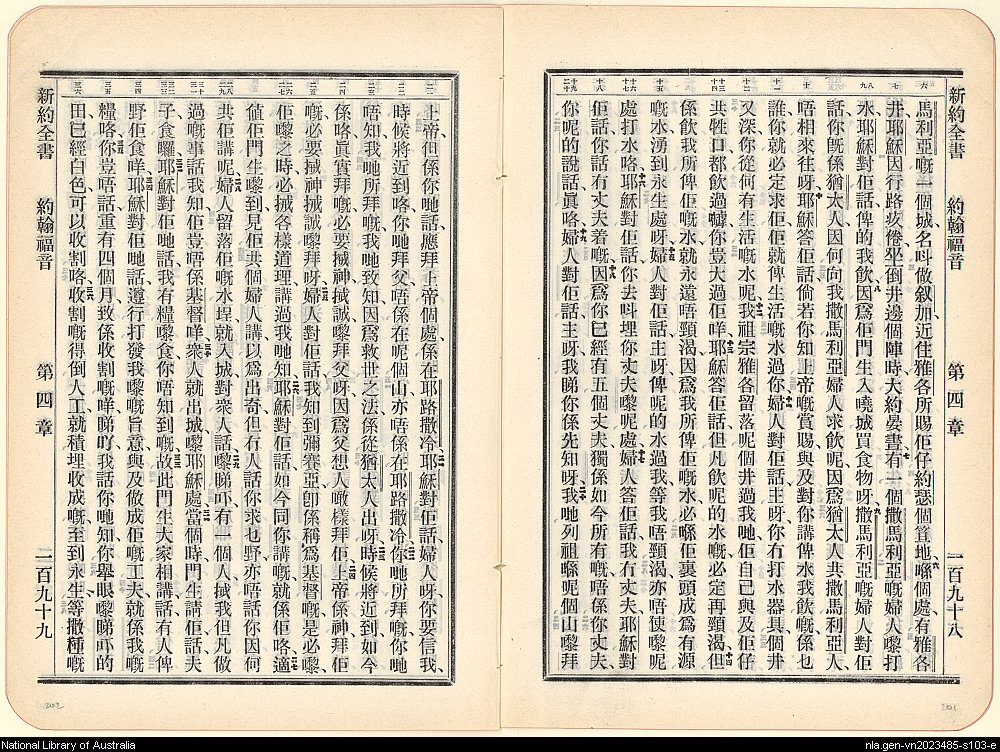 新約全書 約翰福音 第四章 一百九十八
馬利亞嘅一個城名叫做叙加近住雅各所賜佢仔約瑟個笪地喺個處有雅各
井耶穌因行路疲倦坐倒井邊個陣時大約晏晝有一個撒馬利亞嘅婦人嚟打
水耶穌對佢話俾的我飲因爲佢門生入嘵城買食物呀撒馬利亞嘅婦人對佢
話你旣係猶太人因何向我撒馬利亞婦人求飲呢因爲猶太人共撒馬利亞人
唔相來往呀耶穌答佢話倘若你知上帝嘅賞賜與及對你講俾水我飲嘅係乜
誰你就必定求佢佢就俾生活嘅水過你婦人對佢話主呀你冇打水器具個井
又深你從何有生活嘅水呢我祖宗雅各留落呢個井過我哋佢自己與及佢仔
共牲口都飲過嚹你豈大過佢咩耶穌答佢話但凡飲呢的水嘅必定再頸渴但
係飲我所俾佢嘅水就永遠唔頸渴因爲我所俾佢嘅水必喺佢裏頭成爲有源
嘅水湧到永生處呀婦人對佢話主呀俾呢的水過我等我唔頸渴亦唔使嚟呢
處打水咯耶穌對佢話你去叫埋你丈夫嚟呢處婦人答佢話我冇丈夫耶穌對
佢話你話冇丈夫着嘅因爲你已經有五個丈夫獨係如今所有嘅唔係你丈夫
你呢的說話眞咯婦人對佢話主呀我睇你係先知呀我哋列祖喺呢個山嚟拜
上帝但係你哋話應拜上帝個處係在耶路撒冷耶穌對佢話婦人呀你要信我
時候將近到咯你哋拜父唔係在呢個山亦唔係在耶路撒冷你哋所拜嘅你哋
唔知我哋所拜嘅我哋致知因爲救世之法係從猶太人出呀時候將近到如今
係咯眞實拜嘅必要搣神搣誠嚟拜父呀因爲父想人噉樣拜佢上帝係神拜佢
嘅必要搣神搣誠嚟拜呀婦人對佢話我知到彌賽亞卽係稱爲基督嘅是必嚟
佢嚟之時必搣各樣道理講過我哋知耶穌對佢話如今同你講嘅就係佢咯適
値佢門生嚟到見佢共個婦人講以爲出奇但冇人話你求乜野亦唔話你因何
共佢講呢婦人留落佢嘅水埕就入城對衆人話嚟睇吓有一個人搣我但凡做
過嘅事話我知佢豈唔係基督咩衆人就出城嚟耶穌處當個時門生請佢話夫
子食囉耶穌對佢哋話我有糧嚟食你唔知到嘅故此門生大家相講話有人俾
野佢食咩耶穌對佢哋話遵行打發我嚟嘅旨意與及做成佢嘅工夫就係我嘅
糧咯你豈唔話重有四個月致係收割嘅咩睇吖我話你哋知你舉眼嚟睇吓的
田已經白色可以收割咯收割嘅得倒人工就積埋收成嘅至到永生等撒種嘅
新約全書 約翰福音 第四章 二百九十九
202
201
National Library of Australia
nla.gen-vn2023485-s103-e